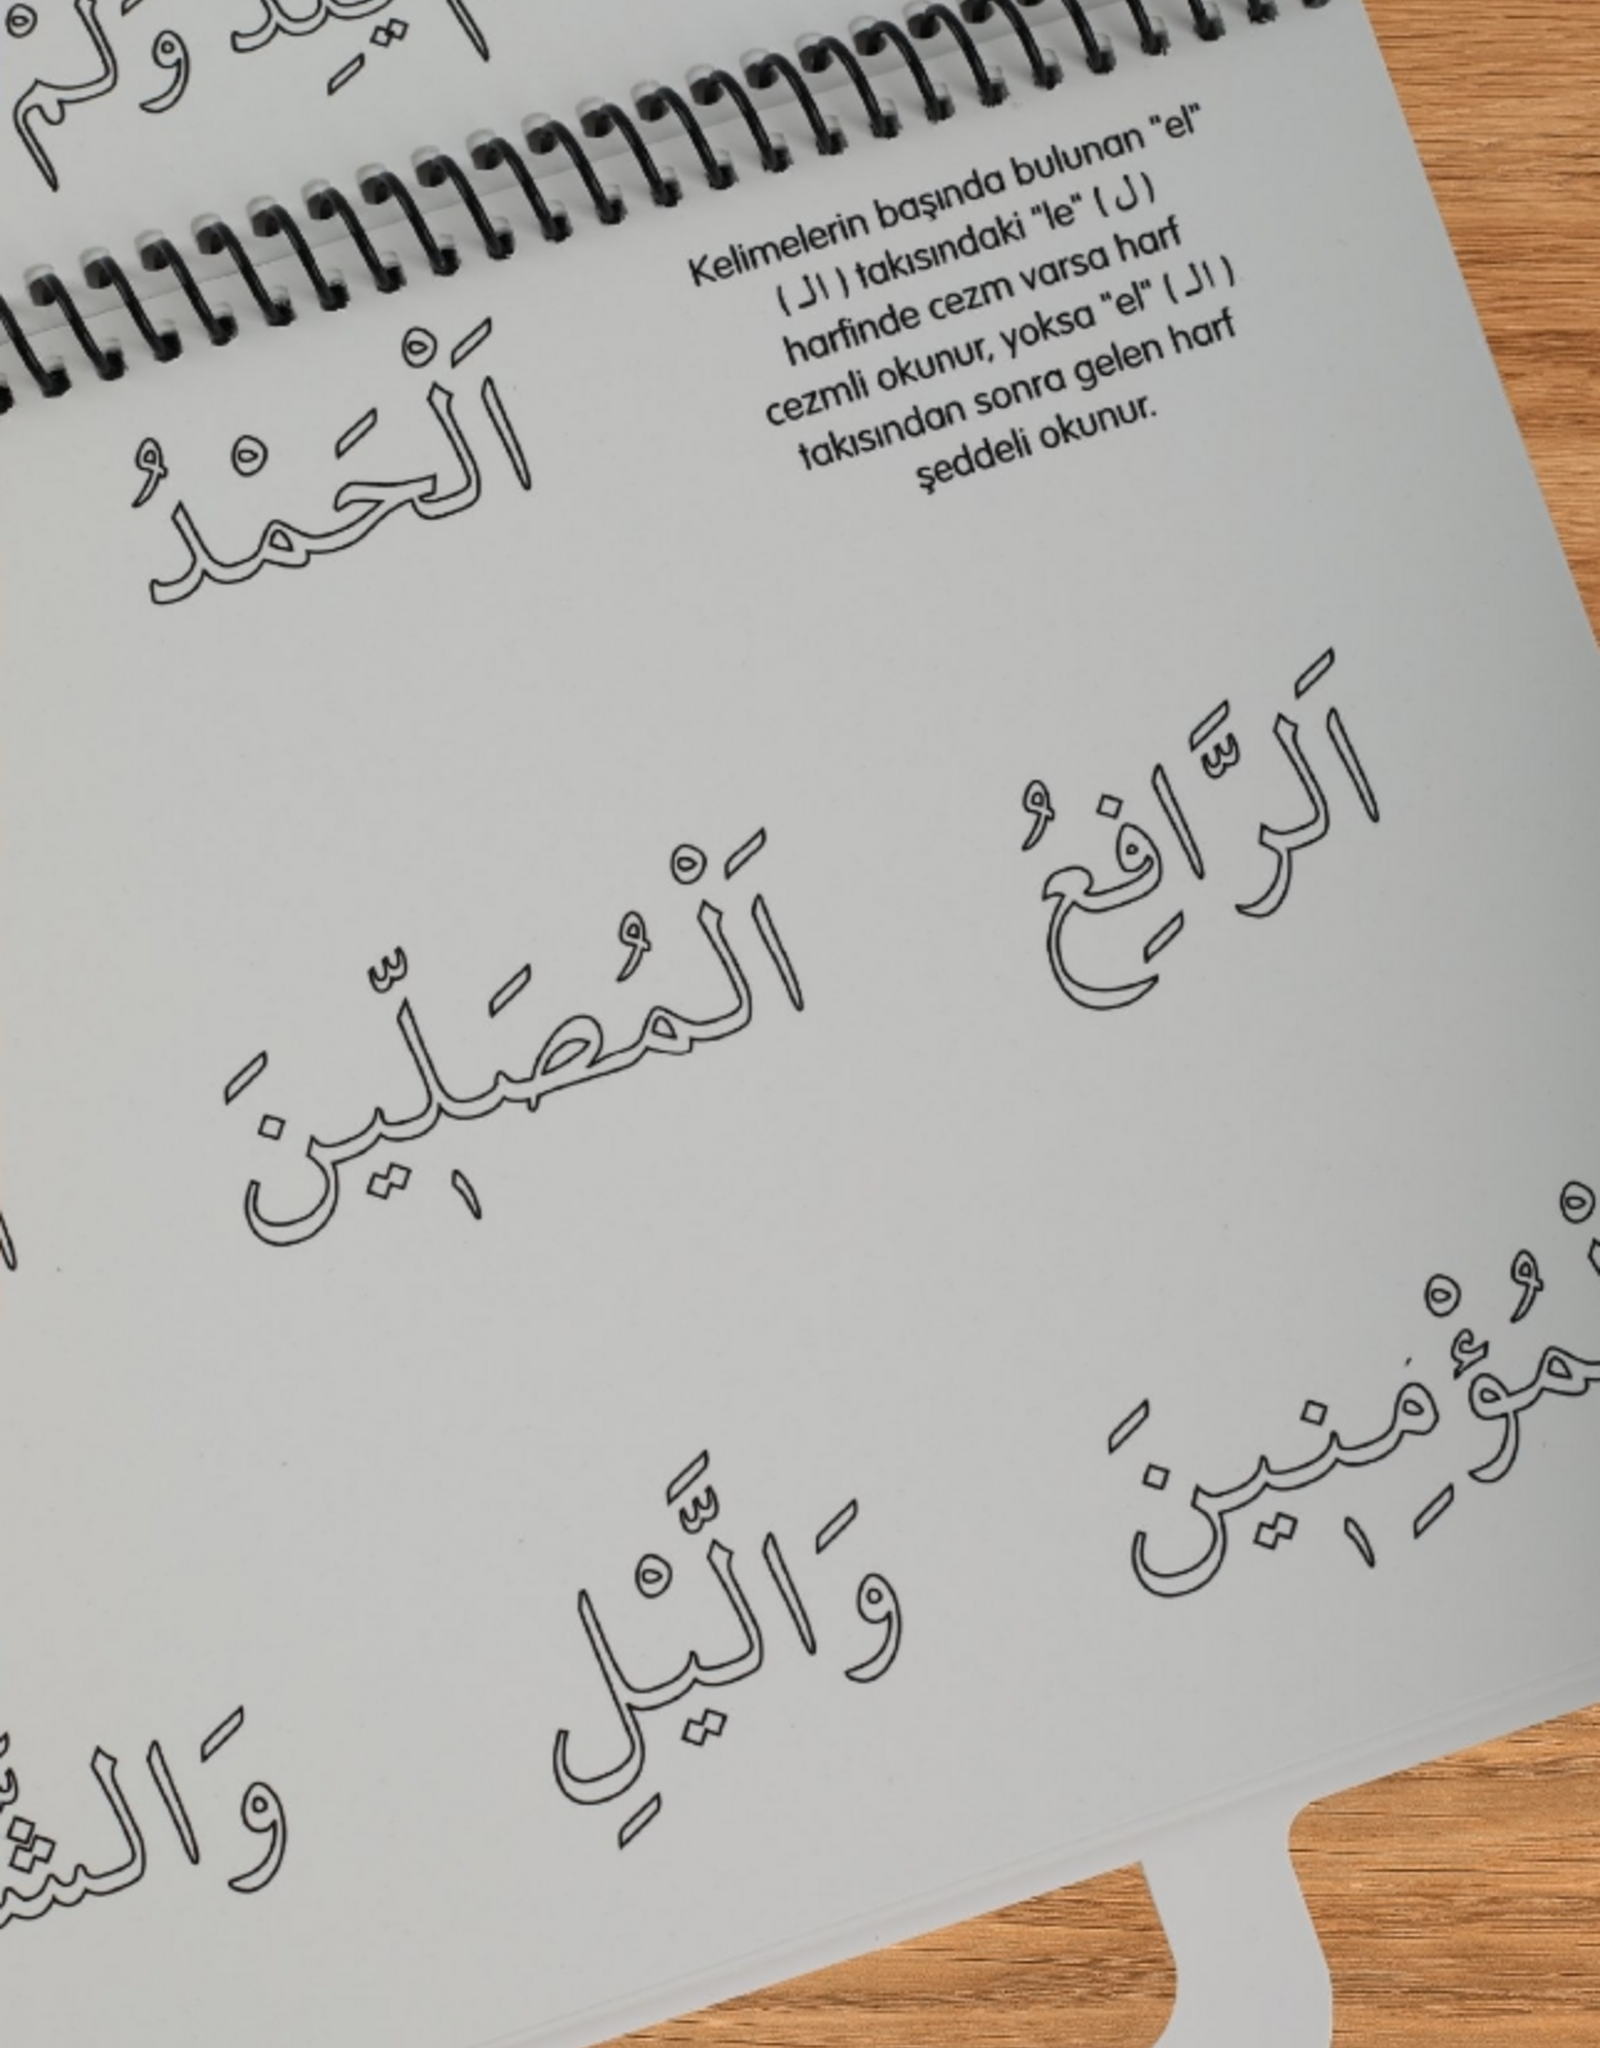 وَلَمْ
Kelimelerin başında bulunan "el"
( الـ ) takısındaki "le" ( ل )
harfinde cezm varsa harf
cezmli okunur, yoksa "el" ( الـ )
takısından sonra gelen harf
şeddeli okunur.
اَلْحَمْدُ
اَلرَّافِعُ
اَلْمُصَلّ۪ينَ
وَالَّيْلِ